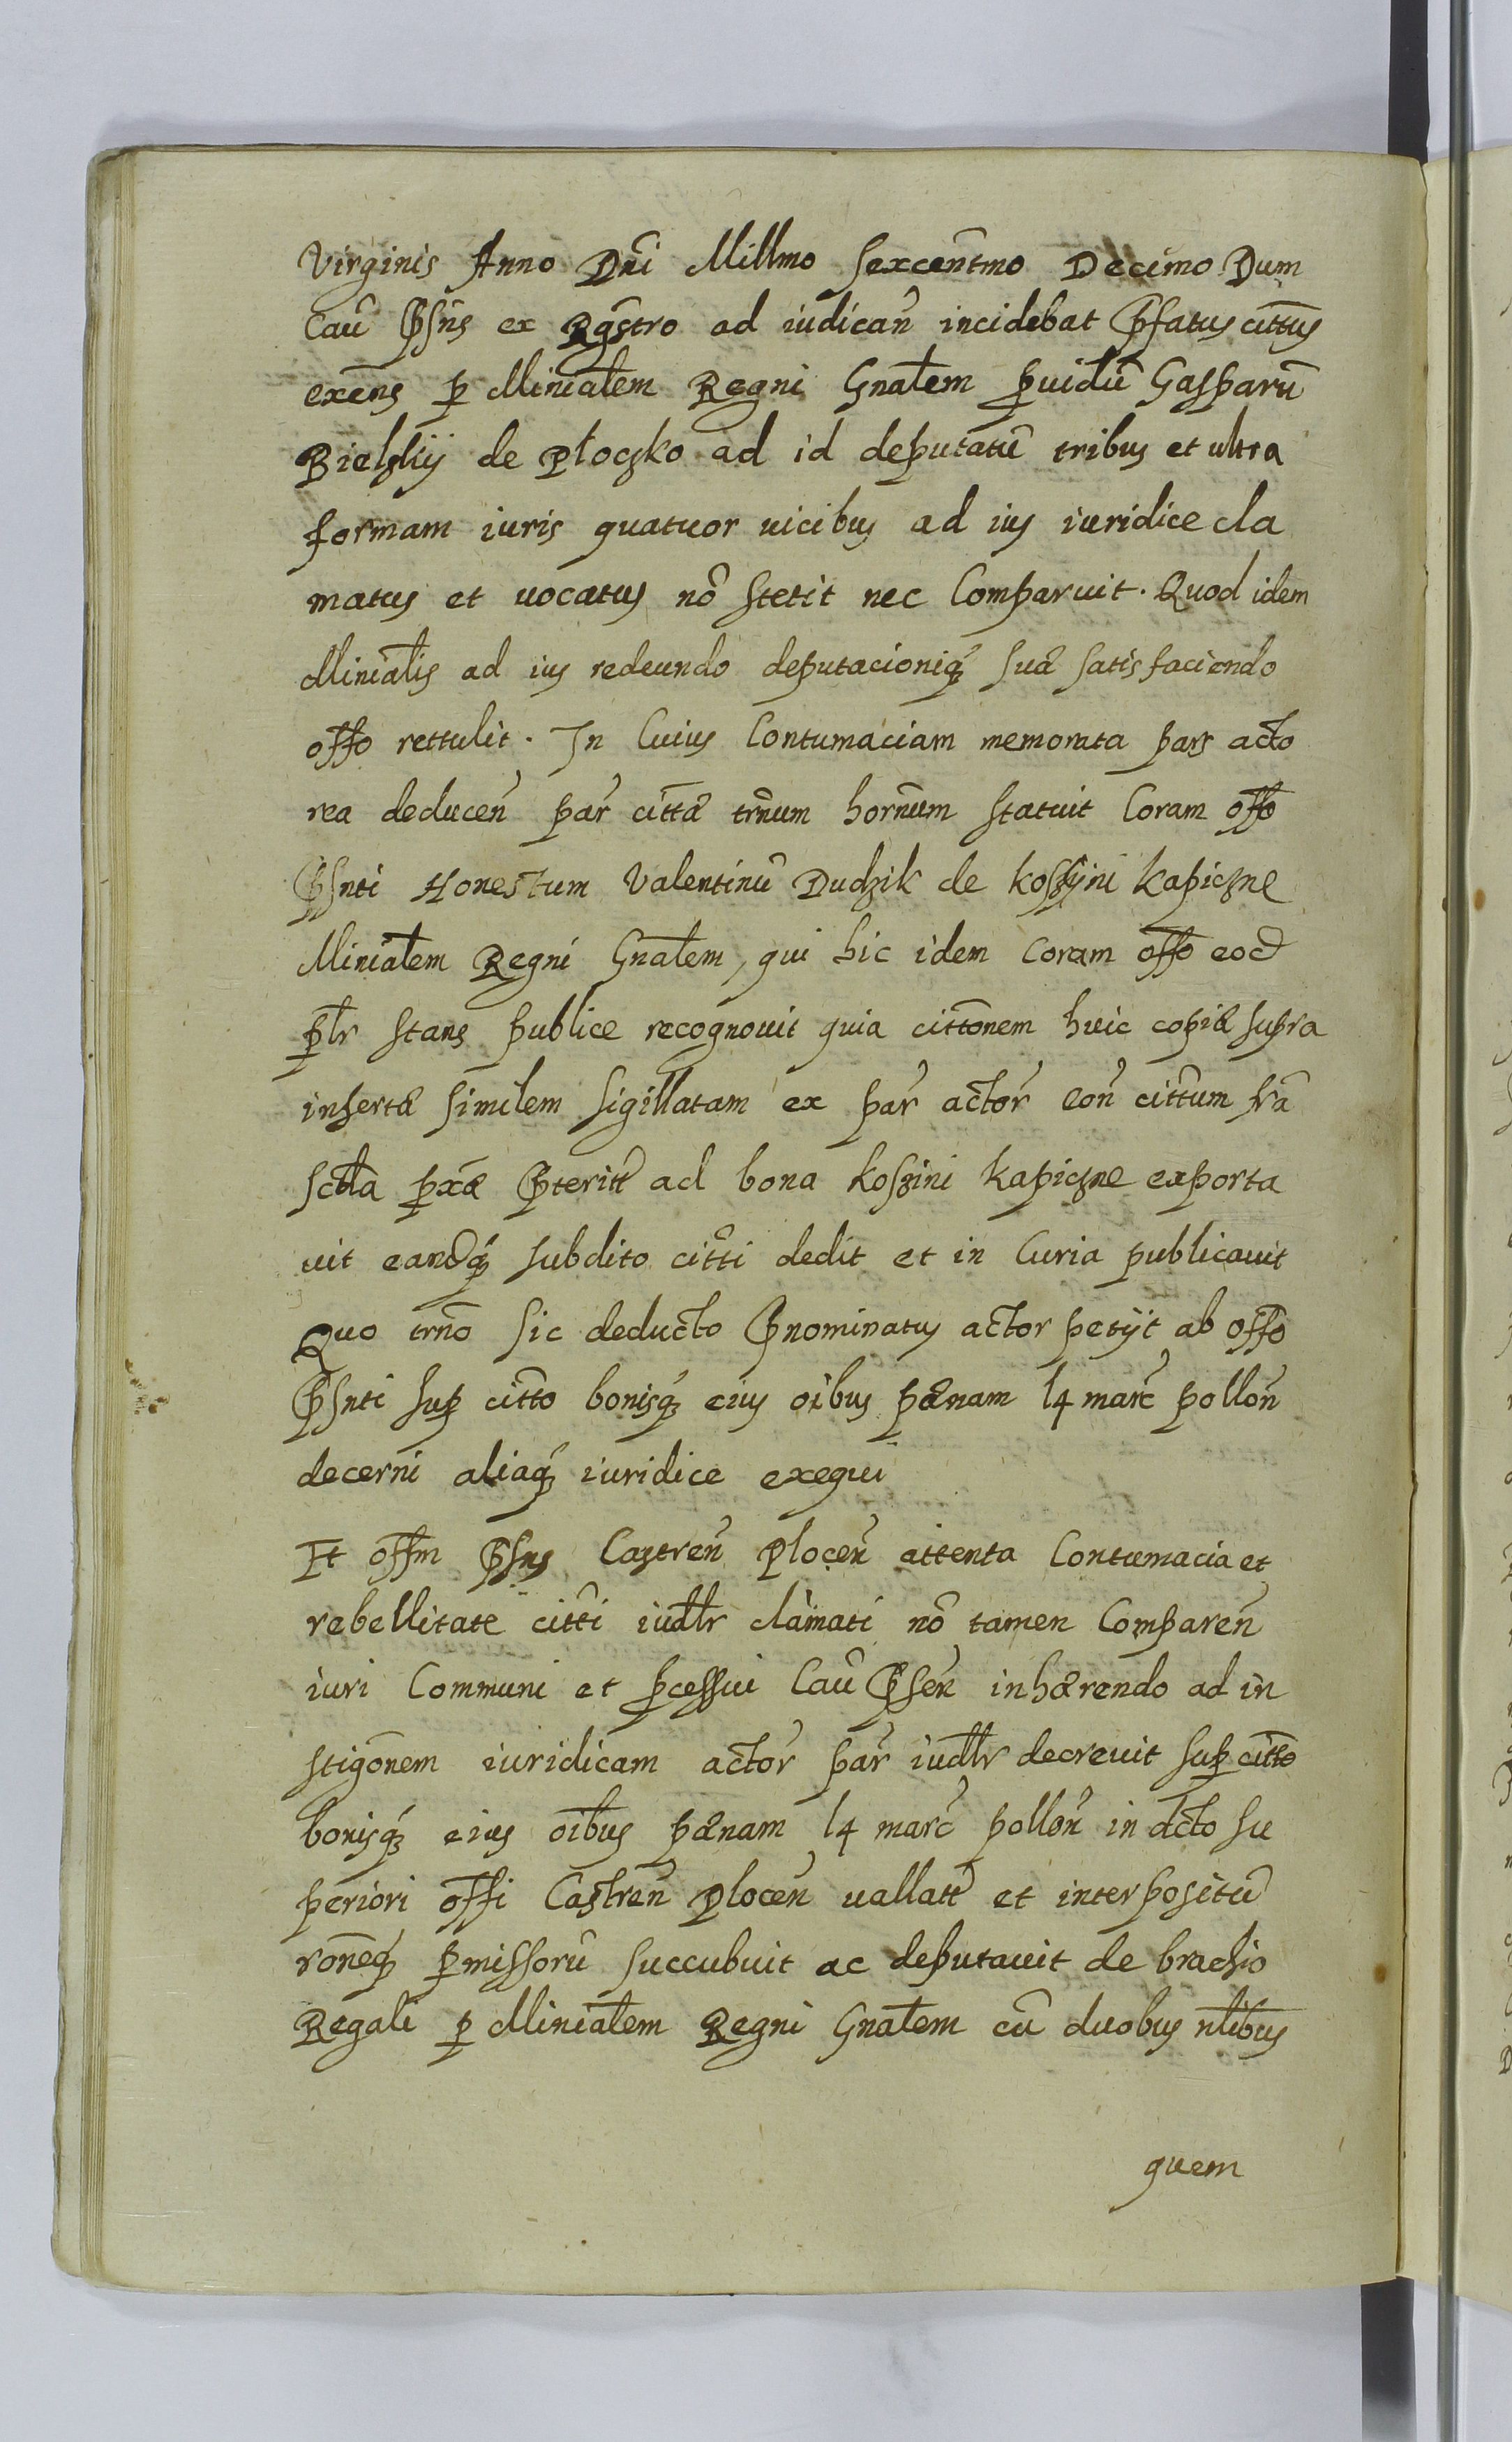 Virginis Anno Dn̄i Millmo sexcentmo Decimo Dum
Cau Pn̄s ex Rgs̄tro ad iudican̄ incidebat P̄fatus cittus
exen̄s p Minialem Regni Gnalem puidū Gasparū
Bielskij de Płoczko ad id deputatū tribus et ultra
formam iuris quatuor uicibus ad ius iuridice cla
matus et uocatus nō stetit nec Comparuit. Quod idem
Minialis ad ius redeundo deputacioniq₃ suæ satisfaciendo
offo rettulit. In Cuius Contumaciam memorata pars acto
rea deducen̄ par̄ cittæ trn̄um horn̄um statuit Coram offo
Pn̄ti Honestum Valentinū Dudzik de Koszyni Kapiczne
Minialem Regni Gnalem, qui hic idem Coram offo eod
plr stans publice recognouit quia cittonem huic copiæ supra
insertæ similem sigillatam ex par̄ actor̄ Con̄ cittum fra
sctla pxæ P̄terit ad bona Koszini Kapiczne exporta
uit eandq₃ subdito citti dedit et in Curia publicauit
Quo trn̄o sic deducto P̄nominatus actor petijt ab offo
Pn̄ti sup citto bonisq₃ eius oibus pænam 14 marc̄ pollon̄
decerni aliaq₃ iuridice exequi
Et offm Pn̄s Castren̄ Plocen̄ attenta Contumacia et
rebellitate citti iudlr clamati nō tamen Comparen̄
iuri Communi et pcessui Cau Psen̄ inhærendo ad in
stigōnem iuridicam actor̄ par̄ iudlr decreuit sup citto
bonisq₃ eius oibus pænam 14 marc̄ pollon̄ in dcto su
periori offi Castren̄ Plocen̄ uallatū et interpositū
ronēq₃ pmissorū succubuit ac deputauit de brachio
Regali p Minialem Regni Gnalem cū duobus nlibus
quem